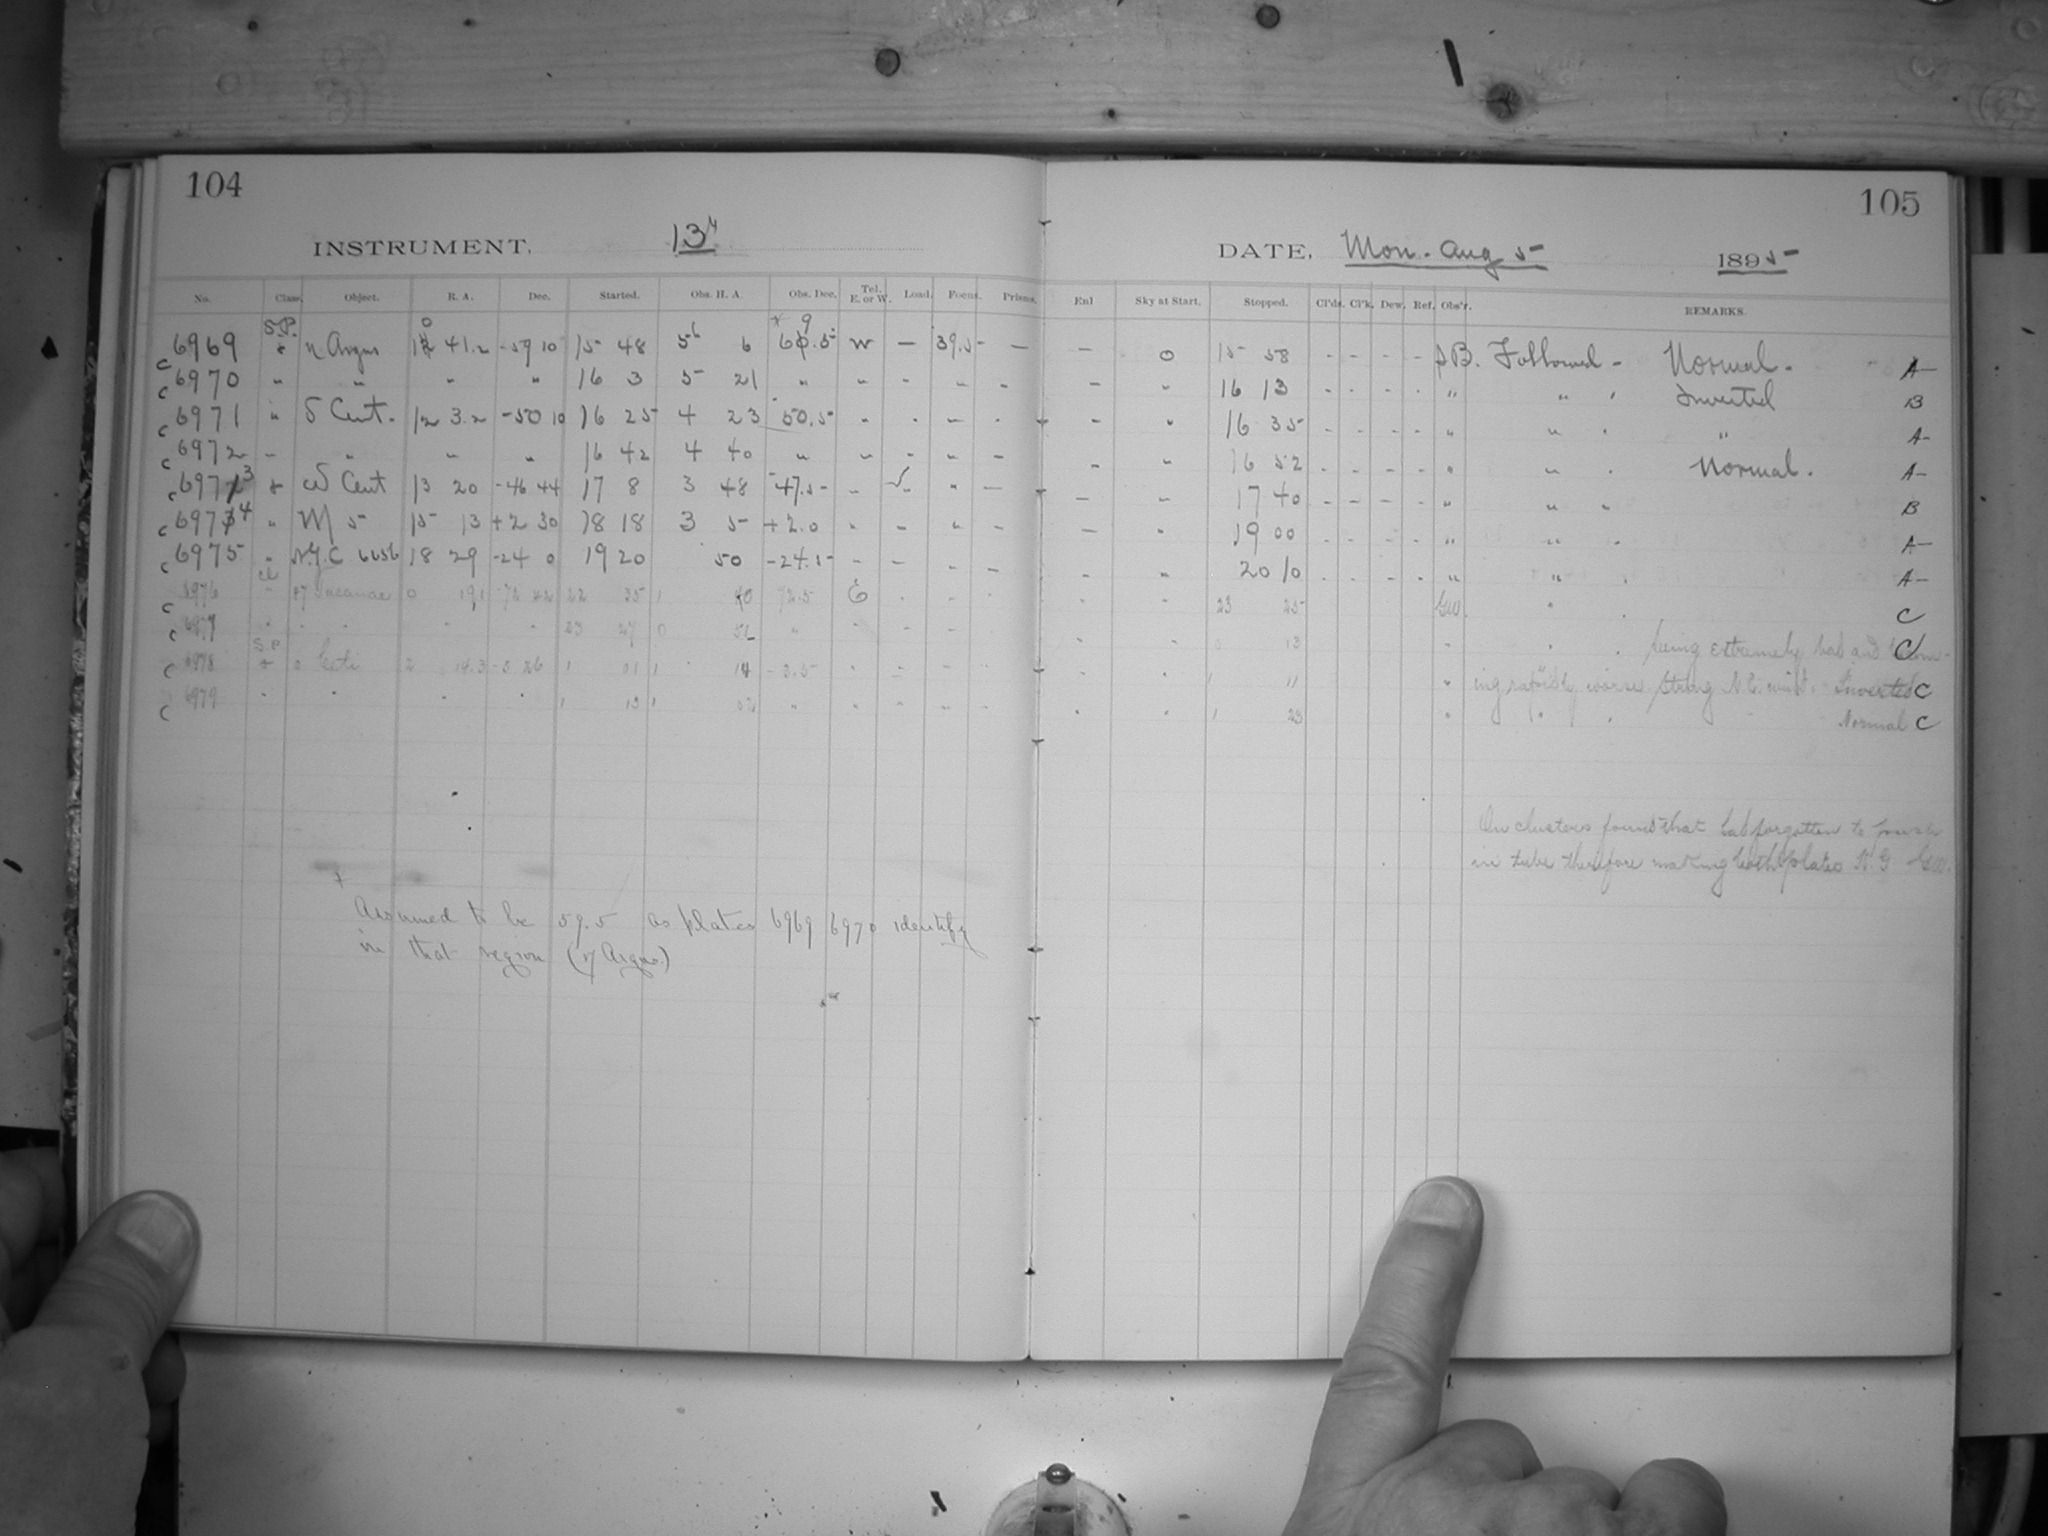 104
105
INSTRUMENT, 13"
DATE, Mon. Aug 5 1895
No. Class. Object. R. A. Dec. Started. Obs. H. A. Obs. Dec. Tel. E. or W. Load. Focus. Prisms. Enl Sky at Start. Stopped. Cl'ds. Cl'k. Dew. Ref. Obs'r. REMARKS.
S.P.
c 6969 η Argus 10 41.2 -59 10 15 48 5 6 W — 39.5 — — 0 15 58 - - - - Followed - Normal. A-
c 6970 " " " " 16 3 5 21 " " - " - — " 16 13 - - - - " " Inverted B
c 6971 " δ Cent. 12 3.2 -50 10 16 25 4 23 -50.5 " - — - — " 16 35 - - - - " " " A-
c 6972 " " " " 16 42 4 40 " " - " — - " 16 52 - - - - " " Normal. A-
c 6973 ω Cent 13 20 -46 44 17 8 3 48 -47.5 " " — — " 17 40 - - - - " " " B
c 6974 " M 5 15 13 +2 30 18 18 3 5 +2.0 " - " - — " 19 00 - - - - " " A-
c 6975 " N.G.C 6656 18 29 -24 0 19 20 50 -24.5 " - - — - " 20 10 - - - - " " A-
cl
c 6976 47 Tucanae 0 19.1 -72 42 22 35 1 40 72.5 E 23 25 " C
c 6977 " " " " 23 27 0 " " 0 13 " " seeing extremely bad and C
S.P.
c 6978 o Ceti 2 14.3 -3 26 1 01 1 14 -3.5 1 11 " ing rapidly worse Strong N.E. wind. Inverted C
c 6979 " " " 1 13 1 02 " " " " 1 23 " " Normal C
On clusters found that had forgotten to push
in tube therefore making both plates N.G
+ Assumed to be 59.5 as plates 6969 6970 identify
in that region (η Argus)